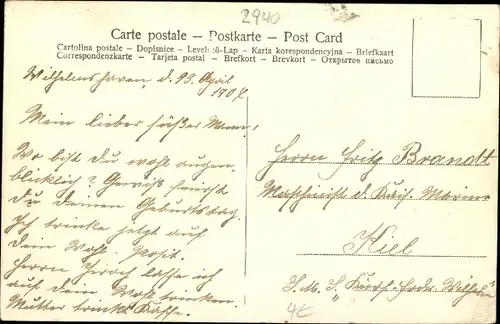 2940
Carte postale – Postkarte – Post Card
Cartolina postale – Dopisnice – Levelező-Lap – Karta korespondencyjna – Briefkaart
Correspondenzkarte – Tarjeta postal – Brefkort – Brevkort – Открытое письмо
Wilhelmshaven, d. 23. April
1907.
Mein lieber süßer Mann!
Wo bist du wohl augen-
blicklich? Gewiß feierst
du deinen Geburtstag.
Ich trinke jetzt auf
dein Wohl. Prosit.
Herrn lasse ich
auf dein Wohl trinken.
Mutter trinkt Kaffe.
Herrn Fritz Brandt
Maschinist d. Kais. Marine
Kiel
S. M. S. "Kurf. Fried. Wilhelm"
4€